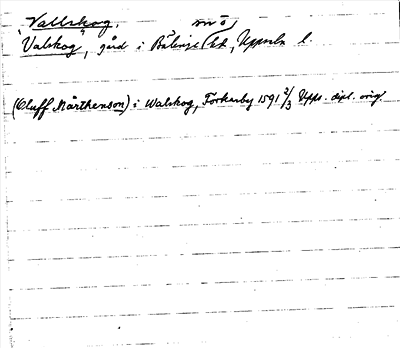 Vallskog,
"Valskog", gård i Bälinge sn o sk, Uppsala l.
(Oluff Mårthenson) i Walskog, Forkarby 1591 2/3 Upps. dipl. orig.